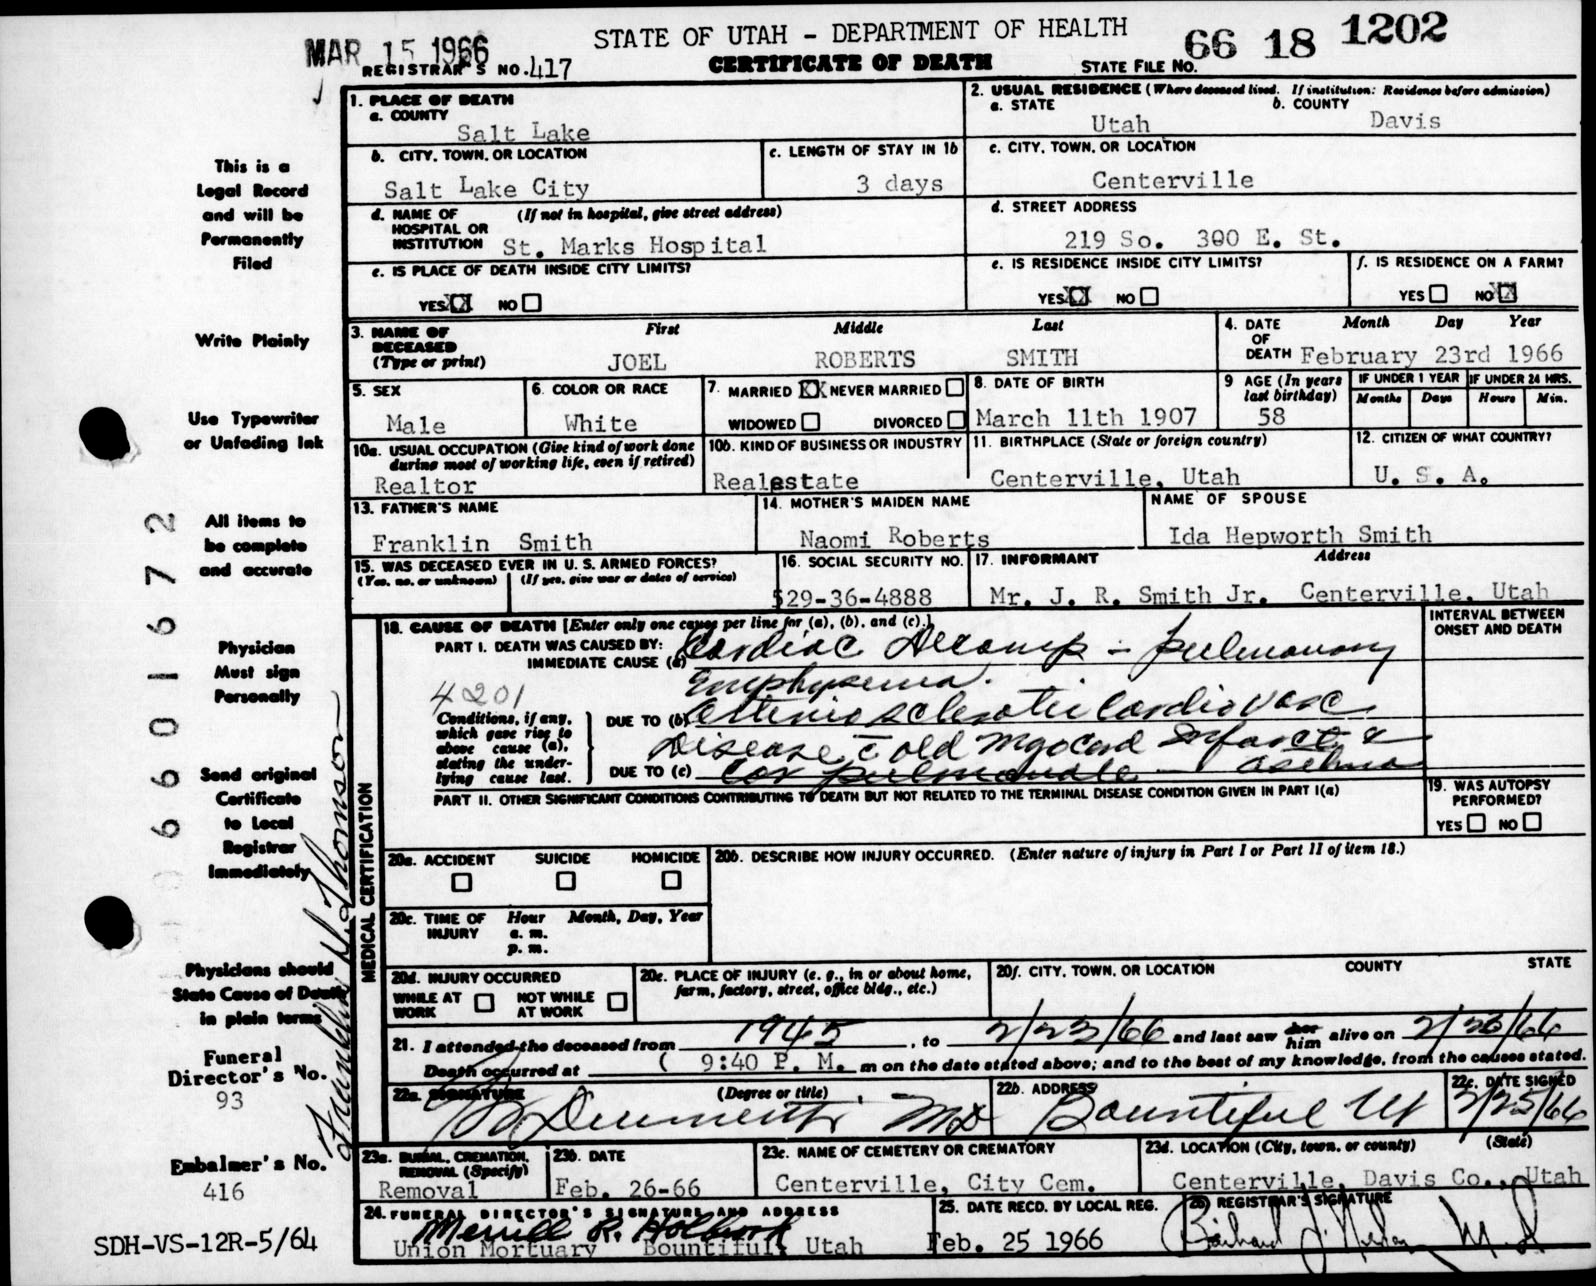 MAR 15 1966
STATE OF UTAH - DEPARTMENT OF HEALTH
66 18 1202
REGISTRAR'S NO. 417
CERTIFICATE OF DEATH
STATE FILE NO.
1. PLACE OF DEATH
a. COUNTY
Salt Lake
2. USUAL RESIDENCE (Where deceased lived. If institution: Residence before admission)
a. STATE b. COUNTY
Utah Davis
b. CITY, TOWN, OR LOCATION
Salt Lake City
c. LENGTH OF STAY IN 1b
3 days
c. CITY, TOWN, OR LOCATION
Centerville
d. NAME OF HOSPITAL OR INSTITUTION (If not in hospital, give street address)
St. Marks Hospital
d. STREET ADDRESS
219 So. 300 E. St.
e. IS PLACE OF DEATH INSIDE CITY LIMITS?
YES XX NO
e. IS RESIDENCE INSIDE CITY LIMITS?
YES XX NO
f. IS RESIDENCE ON A FARM?
YES NO XX
3. NAME OF DECEASED (Type or print)
First Middle Last
JOEL ROBERTS SMITH
4. DATE OF DEATH
Month Day Year
February 23rd 1966
5. SEX
Male
6. COLOR OR RACE
White
7. MARRIED XX NEVER MARRIED
WIDOWED DIVORCED
8. DATE OF BIRTH
March 11th 1907
9 AGE (In years last birthday)
58
IF UNDER 1 YEAR
Months Days
IF UNDER 24 HRS.
Hours Min.
10a. USUAL OCCUPATION (Give kind of work done during most of working life, even if retired)
Realtor
10b. KIND OF BUSINESS OR INDUSTRY
Realestate
11. BIRTHPLACE (State or foreign country)
Centerville, Utah
12. CITIZEN OF WHAT COUNTRY?
U. S. A.
13. FATHER'S NAME
Franklin Smith
14. MOTHER'S MAIDEN NAME
Naomi Roberts
NAME OF SPOUSE
Ida Hepworth Smith
15. WAS DECEASED EVER IN U. S. ARMED FORCES?
(Yes, no, or unknown) (If yes, give war or dates of service)
16. SOCIAL SECURITY NO.
529-36-4888
17. INFORMANT Address
Mr. J. R. Smith Jr. Centerville, Utah
MEDICAL CERTIFICATION
18. CAUSE OF DEATH [Enter only one cause per line for (a), (b), and (c).]
INTERVAL BETWEEN ONSET AND DEATH
PART I. DEATH WAS CAUSED BY:
IMMEDIATE CAUSE (a) Cardiac Decomp - pulmonary
Emphysema.
4201
Conditions, if any, which gave rise to above cause (a), stating the underlying cause last.
DUE TO (b) Arteriosclerotic Cardiovasc
Disease c̄ old Myocard Infarct &
DUE TO (c) Cor pulmonale - asthma
PART II. OTHER SIGNIFICANT CONDITIONS CONTRIBUTING TO DEATH BUT NOT RELATED TO THE TERMINAL DISEASE CONDITION GIVEN IN PART I(a)
19. WAS AUTOPSY PERFORMED?
YES NO
20a. ACCIDENT SUICIDE HOMICIDE
20b. DESCRIBE HOW INJURY OCCURRED. (Enter nature of injury in Part I or Part II of item 18.)
20c. TIME OF INJURY
Hour Month, Day, Year
a. m.
p. m.
20d. INJURY OCCURRED
WHILE AT WORK NOT WHILE AT WORK
20e. PLACE OF INJURY (e. g., in or about home, farm, factory, street, office bldg., etc.)
20f. CITY, TOWN, OR LOCATION COUNTY STATE
21. I attended the deceased from 1945, to 2/23/66 and last saw her him alive on 2/23/66
Death occurred at ( 9:40 P. M. m on the date stated above; and to the best of my knowledge, from the causes stated.
22a. SIGNATURE (Degree or title)
MD
22b. ADDRESS
Bountiful Ut
22c. DATE SIGNED
2/25/66
23a. BURIAL, CREMATION, REMOVAL (Specify)
Removal
23b. DATE
Feb. 26-66
23c. NAME OF CEMETERY OR CREMATORY
Centerville, City Cem.
23d. LOCATION (City, town, or county) (State)
Centerville, Davis Co., Utah
24. FUNERAL DIRECTOR'S SIGNATURE AND ADDRESS
Merrill R. Holbrook
Union Mortuary Bountiful, Utah
25. DATE RECD. BY LOCAL REG.
Feb. 25 1966
26 REGISTRAR'S SIGNATURE
M.D.
This is a
Legal Record
and will be
Permanently
Filed
Write Plainly
Use Typewriter
or Unfading Ink
All items to
be complete
and accurate
Physician
Must sign
Personally
Send original
Certificate
to Local
Registrar
Immediately
Physicians should
State Cause of Death
in plain terms
Funeral
Director's No.
93
Embalmer's No.
416
SDH-VS-12R-5/64
6601672
Franklin D. Thomson